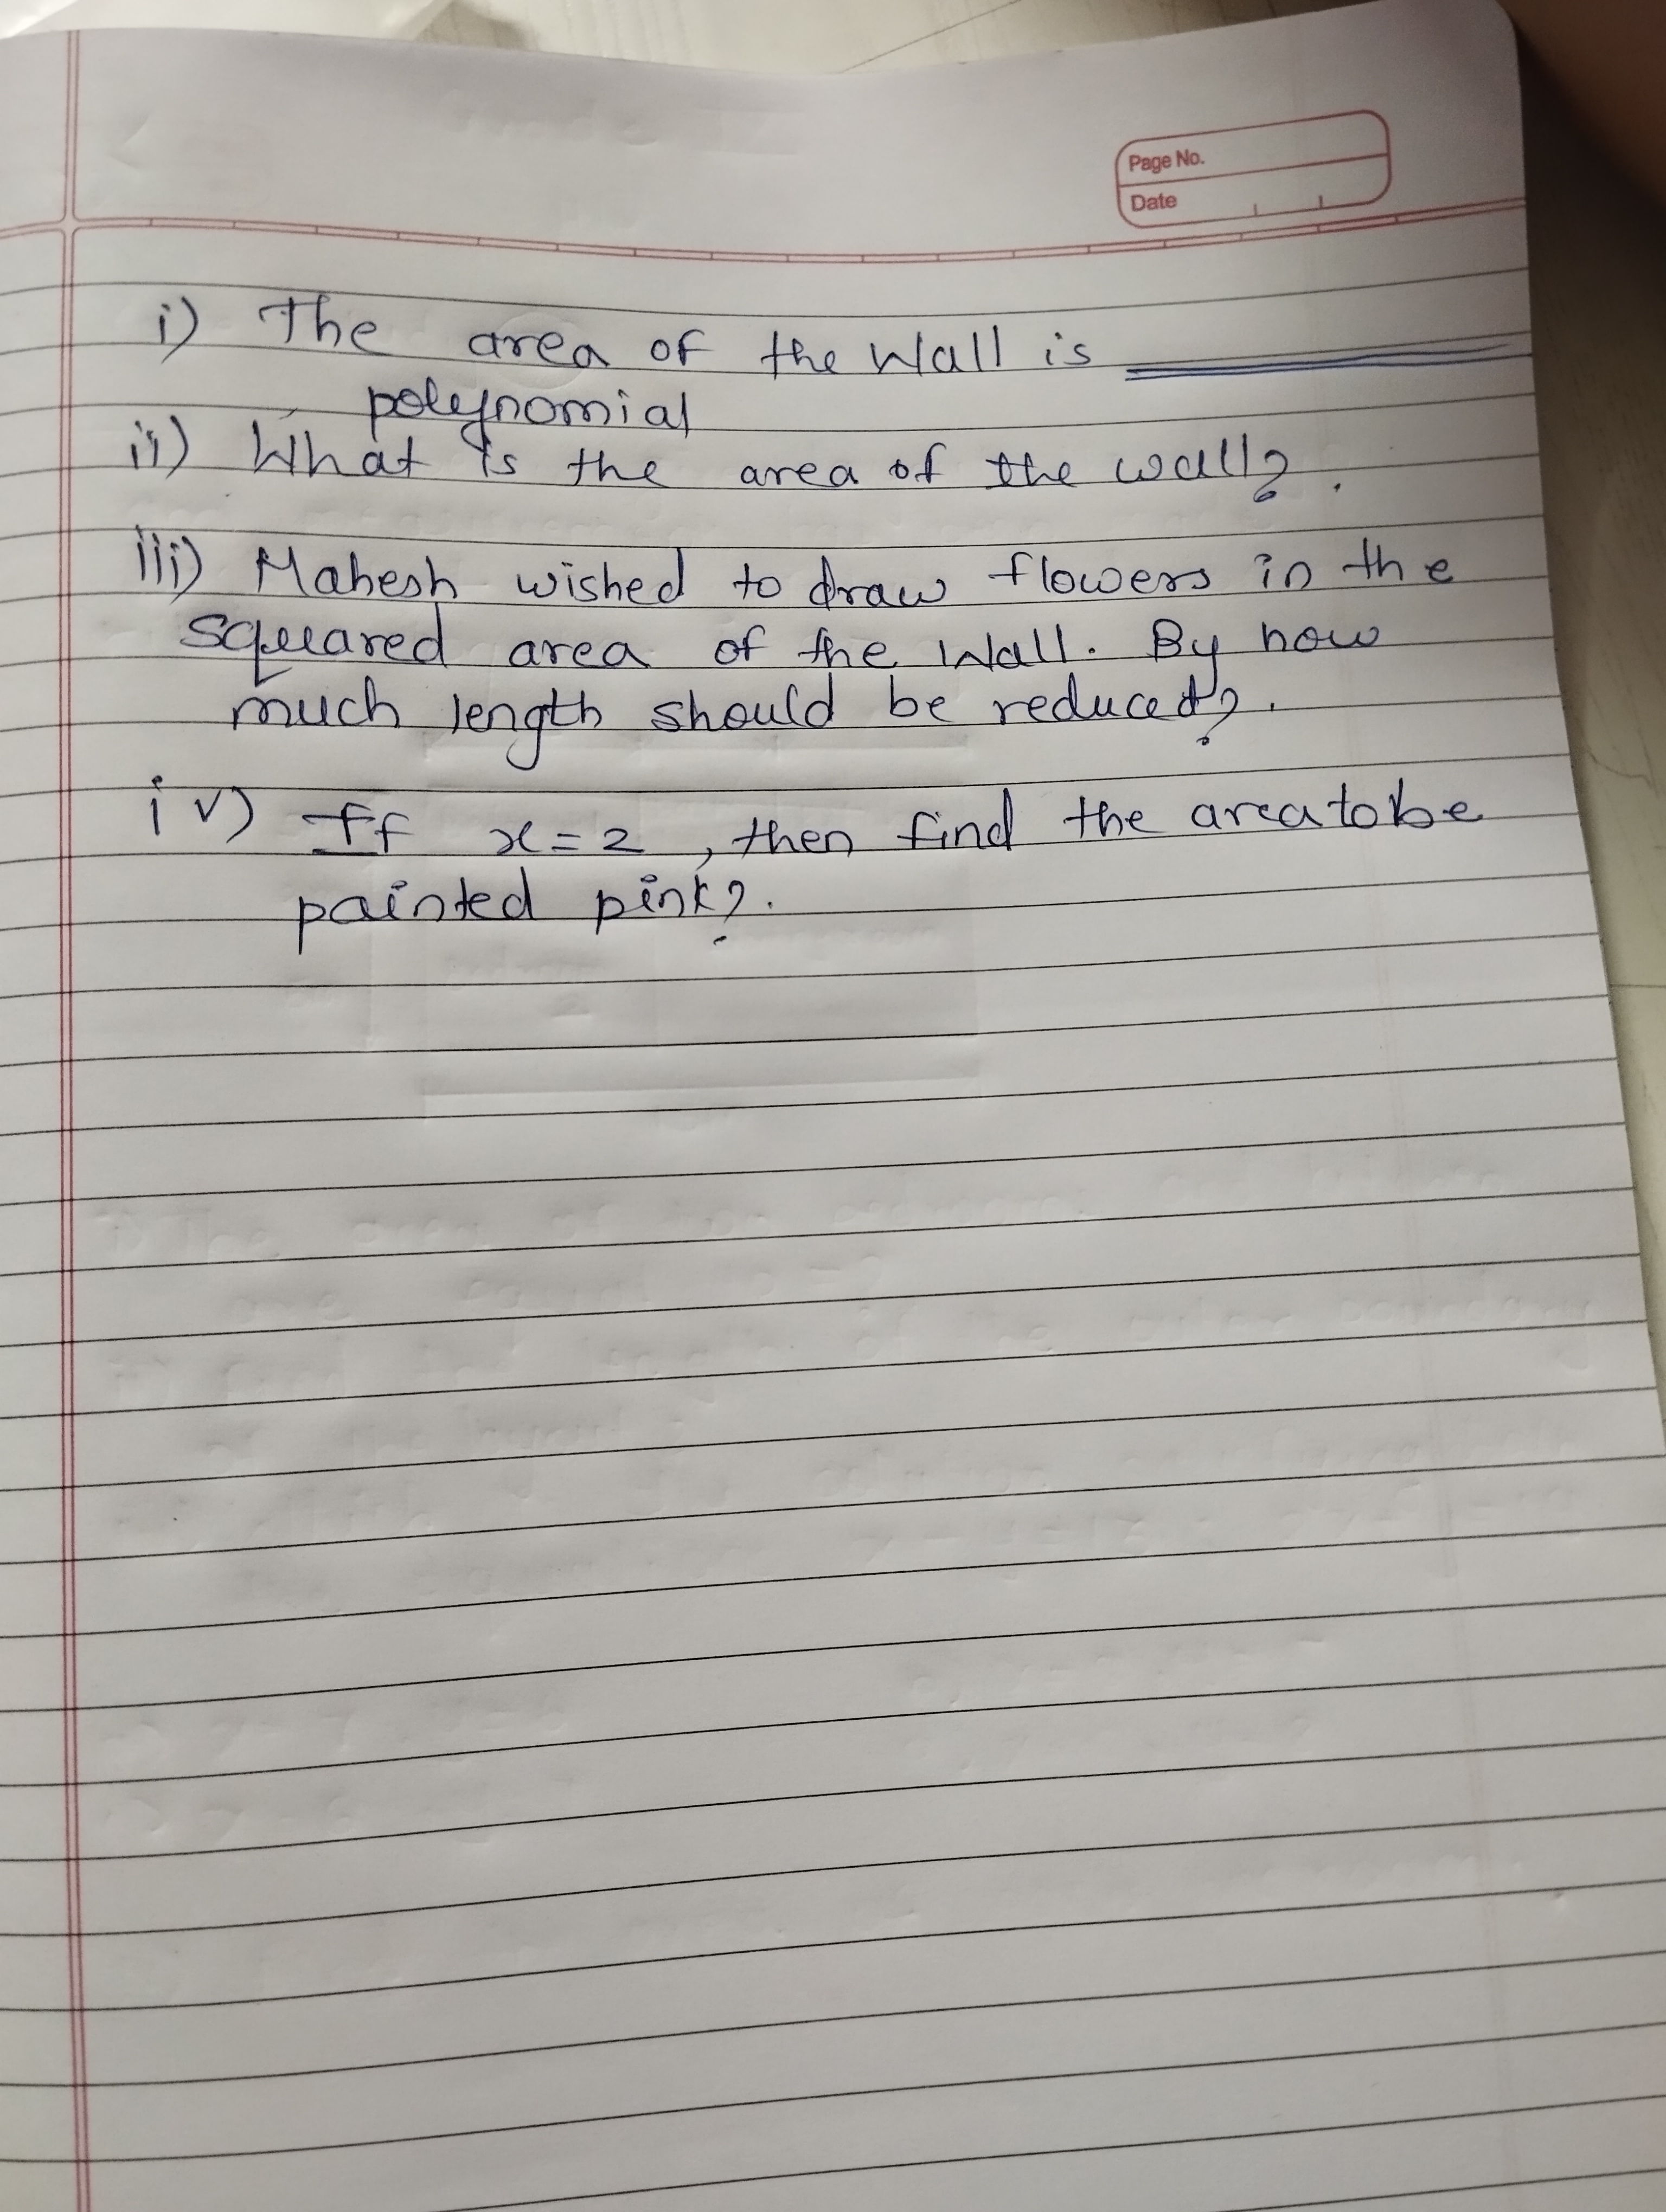 Page No.
Date
i) The area of the Wall is
polynomial
ii) What is the area of the wall?.
iii) Mahesh wished to draw flowers in the
squared area of the Wall. By how
much length should be reduced?.
iv) If x=2, then find the area to be
painted pink?.